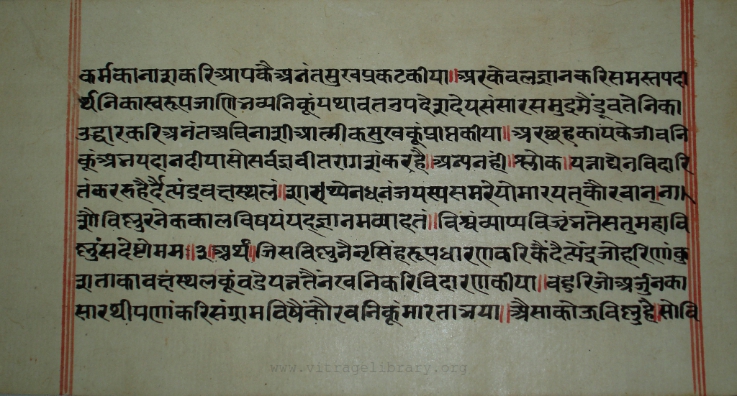 कर्मकानाशकरिआपकैअनंतसुखप्रकटकीया॥अरकेवलज्ञानकरिसमस्तपदा
र्थनिकास्वरूपजाणिभव्यनिकूंयथावतउपदेशदेयसंसारसमुद्रमैंडूवतेनिका
उद्धारकरिअनंतअविनाशीआत्मीकसुखकूंप्राप्तकीया॥अरछहकायकेजीवनि
कूंअभयपदानदीयासोसर्वज्ञवीतरागशंकरहै॥अन्यनही॥श्लोक॥यन्नाद्येनविदारि
तंकररुहैर्दैत्येंद्रवक्षस्थलं॥सारथ्येनधनंजयस्यसमरेयोमारयत्कौरवान्॥ना
शौविष्णुरनेककालविषयंयद्ज्ञानमव्याहतं॥विश्वंव्याप्यविजृंभतेसतुमहावि
ष्णुंसदेष्टोमम॥३॥अर्थ॥जिसविष्णुनैनृसिंहरूपधारणकरिकैंदैत्येंद्रजोहरिणांकु
शताकावक्षस्थलकूंवडेयत्नतैंनखनिकरिविदारणकीया॥वहुरिजोअर्जुनका
सारथीपणांकरिसंग्रामविषैंकौरवनिकूंमारताभया॥अैसाकोऊविष्णुहैसोवि
www.vitragelibrary.org